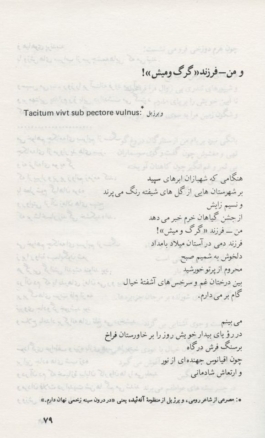 و من – فرزند «گرگ و میش»!
Tacitum vivt sub pectore vulnus:* ویرژیل
هنگامی که شهبازان ابرهای سپید
بر شهرستان هایی از گل های شیفته رنگ می پرند
و نسیم زایش
از جشن گیاهان خرم خبر می دهد
من – فرزند «گرگ و میش»!
فرزند دمی در آستان میلاد بامداد
دلخوش به شمیم صبح
محروم از پرتو خورشید
بین درختان غم و سرخس های آشفتهٔ خیال
گام بر می دارم.
می بینم
در رؤیای بیدار خویش روز را بر خاورستان فراخ
بر سنگ فرش درگاه
چون اقیانوس جهنده ای از نور
و ارتعاش شادمانی
*: مصرعی از شاعر رومی، ویرژیل از منظومهٔ آنه‌ئید، یعنی «در درون سینه زخمی نهان دارم.»
۷۹